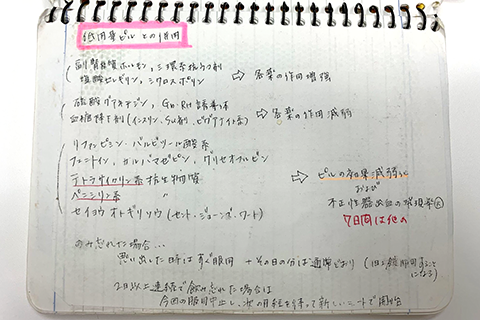 低用量ピルとの併用
副腎皮質ホルモン, 三環系抗うつ剤
塩酸セレギリン, シクロスポリン ⇨ 各薬の作用増強
硫酸グアネチジン, Gn-RH誘導体
血糖降下剤(インスリン, SU剤, ビグアナイド系) ⇨ 各薬の作用減弱
リファンピシン, バルビツール酸系
フェニトイン, カルバマゼピン, グリセオフルビン
テトラサイクリン系抗生物質 ⇨ ピルの効果減弱化
ペニシリン系 〃 および
不正性器出血の発現率
7日間は他の
セイヨウオトギリソウ (セント・ジョーンズ・ワート)
のみ忘れた場合…
思い出した時はすぐ服用 + その日の分は通常どおり (1日2錠服用すること
になる)
2日以上連続で飲み忘れた場合は
今回の服用中止し、次の月経を待って新しいシートで開始